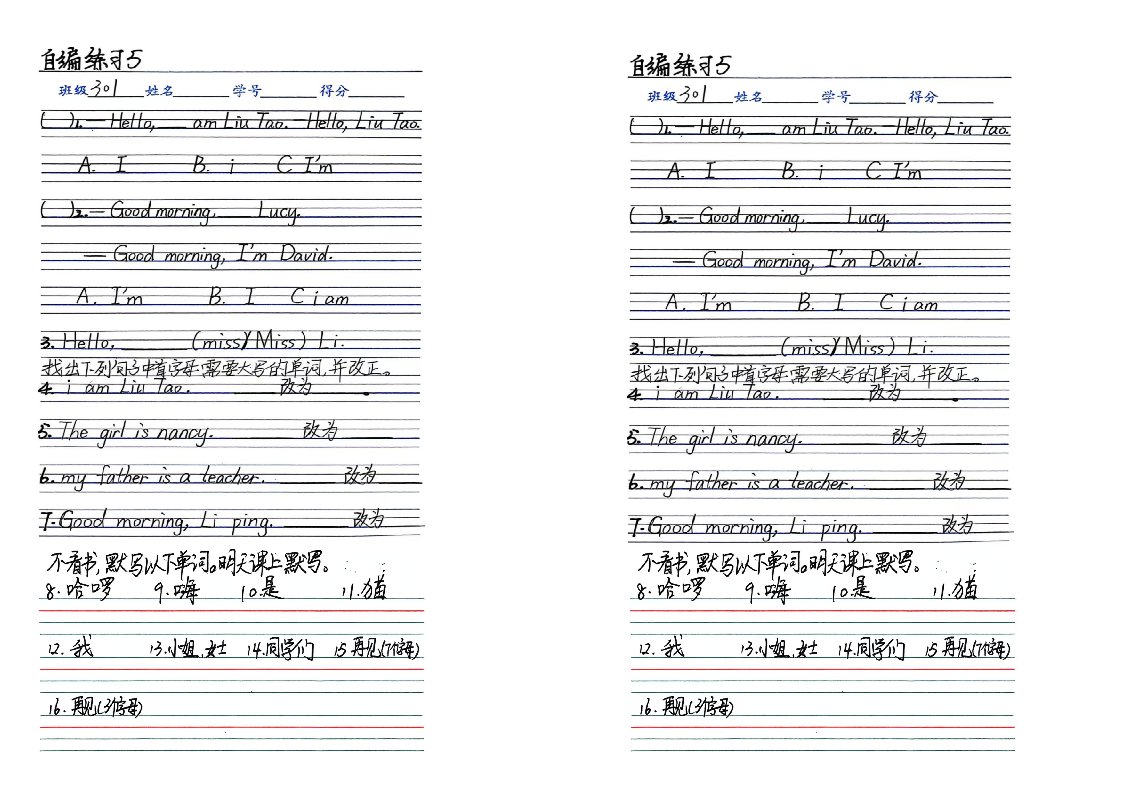 自编练习5
班级301 姓名______ 学号______ 得分______
( )1.— Hello, ___ am Liu Tao. —Hello, Liu Tao.
A. I B. i C I'm
( )2.— Good morning, ___ Lucy.
— Good morning, I'm David.
A. I'm B. I C i am
3. Hello, ______ (miss/Miss) Li.
找出下列句子中首字母需要大写的单词,并改正。
4. i am Liu Tao. ______改为______.
5. The girl is nancy. ______改为______
6. my father is a teacher. ______改为______
7.Good morning, Li ping. ______改为______
不看书,默写以下单词。明天课上默写。
8.哈啰 9.嗨 10.是 11.猫
12.我 13.小姐,女士 14.同学们 15再见(7个字母)
16.再见(3个字母)
自编练习5
班级301 姓名______ 学号______ 得分______
( )1.— Hello, ___ am Liu Tao. —Hello, Liu Tao.
A. I B. i C I'm
( )2.— Good morning, ___ Lucy.
— Good morning, I'm David.
A. I'm B. I C i am
3. Hello, ______ (miss/Miss) Li.
找出下列句子中首字母需要大写的单词,并改正。
4. i am Liu Tao. ______改为______.
5. The girl is nancy. ______改为______
6. my father is a teacher. ______改为______
7.Good morning, Li ping. ______改为______
不看书,默写以下单词。明天课上默写。
8.哈啰 9.嗨 10.是 11.猫
12.我 13.小姐,女士 14.同学们 15再见(7个字母)
16.再见(3个字母)